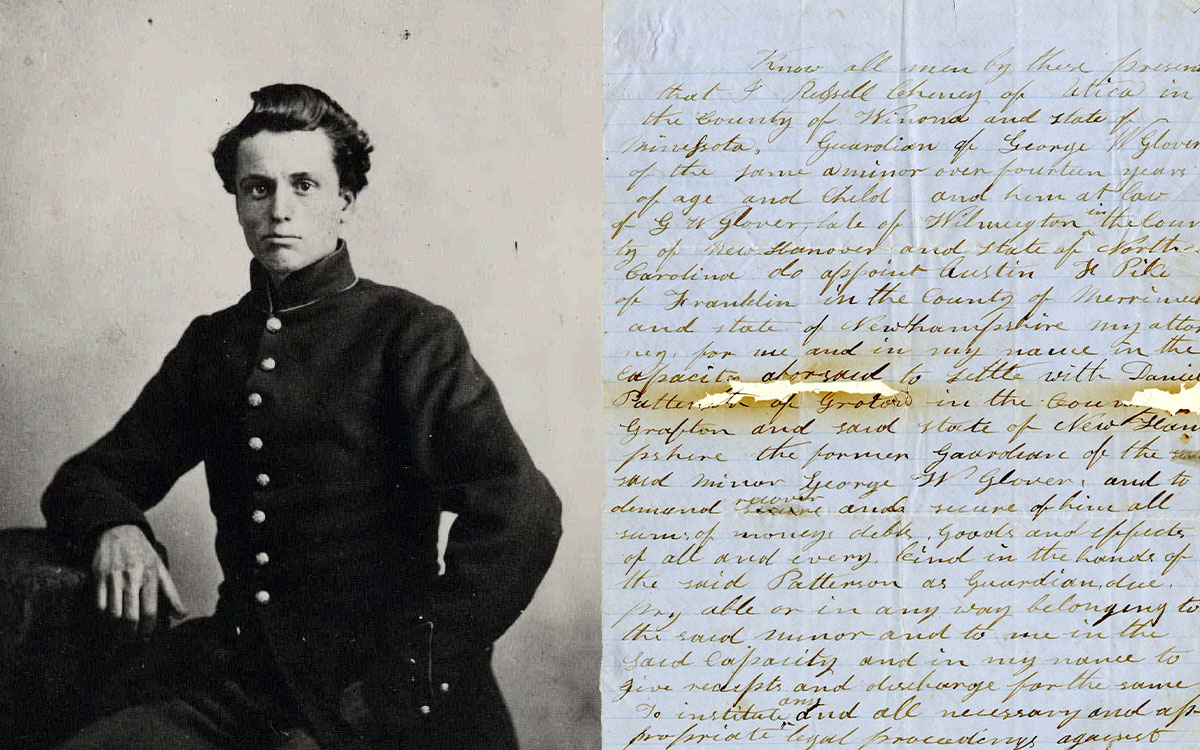 Know all men by these presen
that I Russell Cheney of Utica in
the County of Winona and state of
Minnesota, Guardian of George W Glover
of the same a minor over fourteen years
of age and Child and him at law
of G W Glover, late of Wilmington in the Coun
ty of New Hanover and State of North
Carolina do appoint Austin F Pike
of Franklin in the County of Merrimec
and state of Newhampshire my attor
ney, for me and in my name in the
Capacity aforsaid to settle with Daniel
Patterson of Groton in the Coun
Grafton and said state of New Ham
pshire the former Guardian of the
said minor George W Glover, and to
demand recover and secure of him all
sums of moneys debts, Goods and effects
of all and every Kind in the hands of
the said Patterson as Guardian, due,
pay able or in any way belonging to
the said minor and to me in the
Said Capacity and in my name to
give receipts and discharge for the same
To institute any and all necessary and ap
propriate legal proceedings against